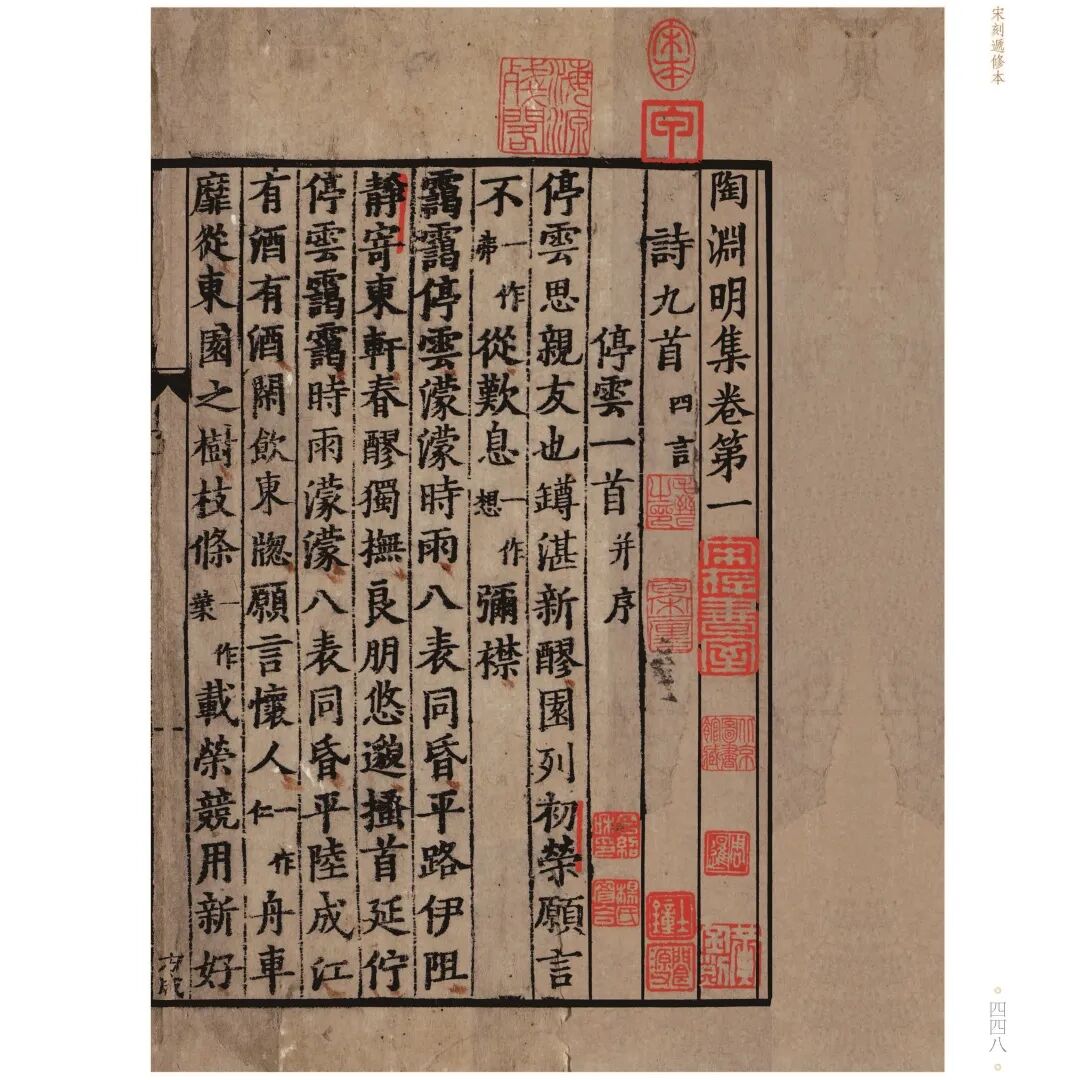 宋刻遞修本
宋本
甲
海源殘閣
陶淵明集卷第一
宋存書室
北京圖書館藏
周暹
詩九首四言
士鐘
停雲一首并序
停雲思親友也罇湛新醪園列初榮願言
不一作弗從歎息一作想彌襟
靄靄停雲濛濛時雨八表同昏平路伊阻
靜寄東軒春醪獨撫良朋悠邈搔首延佇
停雲靄靄時雨濛濛八表同昏平陸成江
有酒有酒閑飲東牕願言懷人一作仁舟車
靡從東園之樹枝條一作葉載榮競用新好
四四八